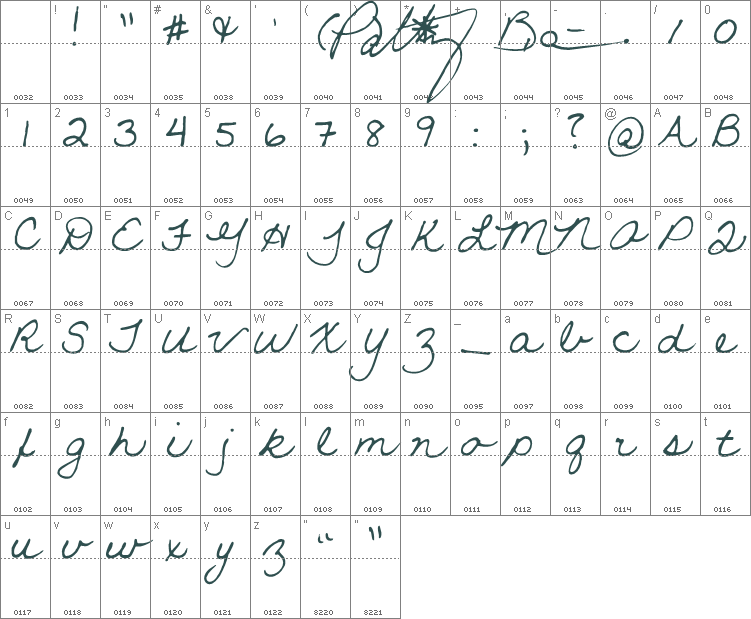 ! " # & ' ( ) * + , - . / 0
! " # & ' Patty * Ba - . / 0
0032 0033 0034 0035 0038 0039 0040 0041 0042 0043 0044 0045 0046 0047 0048
1 2 3 4 5 6 7 8 9 : ; ? @ A B
1 2 3 4 5 6 7 8 9 : ; ? @ A B
0049 0050 0051 0052 0053 0054 0055 0056 0057 0058 0059 0063 0064 0065 0066
C D E F G H I J K L M N O P Q
C D E F G H I J K L M N O P Q
0067 0068 0069 0070 0071 0072 0073 0074 0075 0076 0077 0078 0079 0080 0081
R S T U V W X Y Z _ a b c d e
R S T U V W X Y Z _ a b c d e
0082 0083 0084 0085 0086 0087 0088 0089 0090 0095 0097 0098 0099 0100 0101
f g h i j k l m n o p q r s t
f g h i j k l m n o p q r s t
0102 0103 0104 0105 0106 0107 0108 0109 0110 0111 0112 0113 0114 0115 0116
u v w x y z “ ”
u v w x y z “ ”
0117 0118 0119 0120 0121 0122 8220 8221